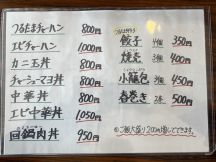 つるたまチャーハン 800円
エビチャーハン 1,000円
カニ玉丼 800円
チャーシューマヨ丼 800円
中華丼 800円
エビ中華丼 1,050円
回鍋肉丼 950円
餃子 4個 350円
焼売 3個 400円
小籠包 3個 450円
春巻き 2本 500円
ご飯大盛り200円増しでできます。